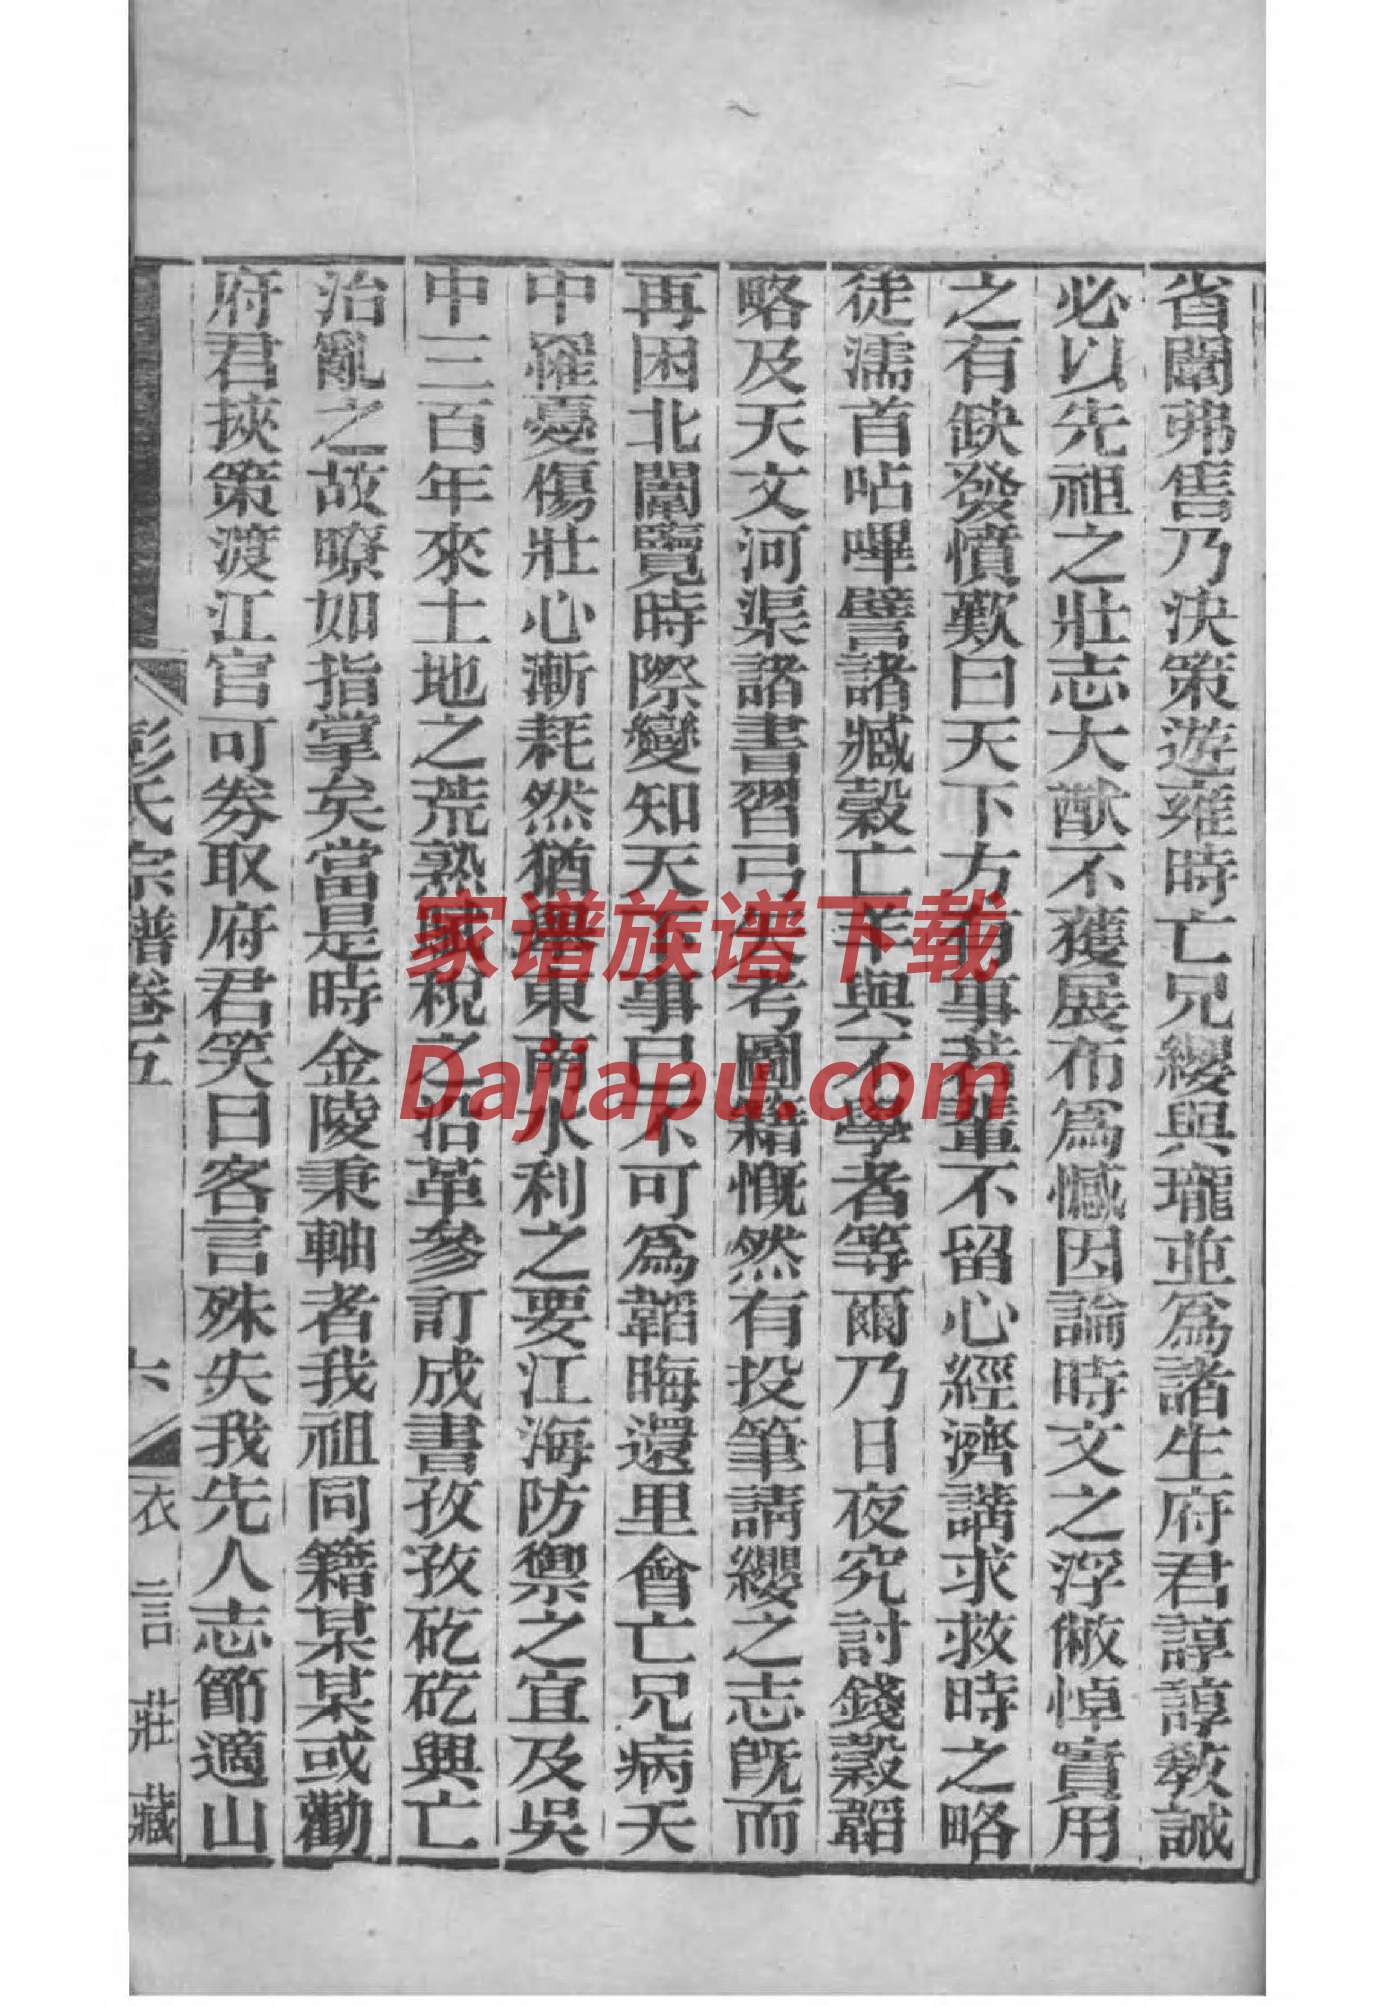 省闈弗售乃決策遊雍時亡兄纓與瓏並爲諸生府君諄諄教誡
必以先祖之壯志大猷不獲展布爲憾因論時文之浮敝悼實用
之有缺發憤歎曰天下方有事若輩不留心經濟講求救時之略
徒濡首呫嗶譬諸臧穀亡羊與不學者等爾乃日夜究討錢穀韜
略及天文河渠諸書習弓矢考圖籍慨然有投筆請纓之志旣而
再困北闈覽時際變知天下事已不可爲韜晦還里會亡兄病夭
中罹憂傷壯心漸耗然猶舉東南水利之要江海防禦之宜及吳
中三百年來土地之荒熟賦稅之沿革參訂成書孜孜矻矻興亡
治亂之故暸如指掌矣當是時金陵秉軸者我祖同籍某某或勸
府君挾策渡江官可券取府君笑曰客言殊失我先人志節適山
彭氏宗譜卷五
六
衣言莊藏
家谱族谱下载
Dajiapu.com